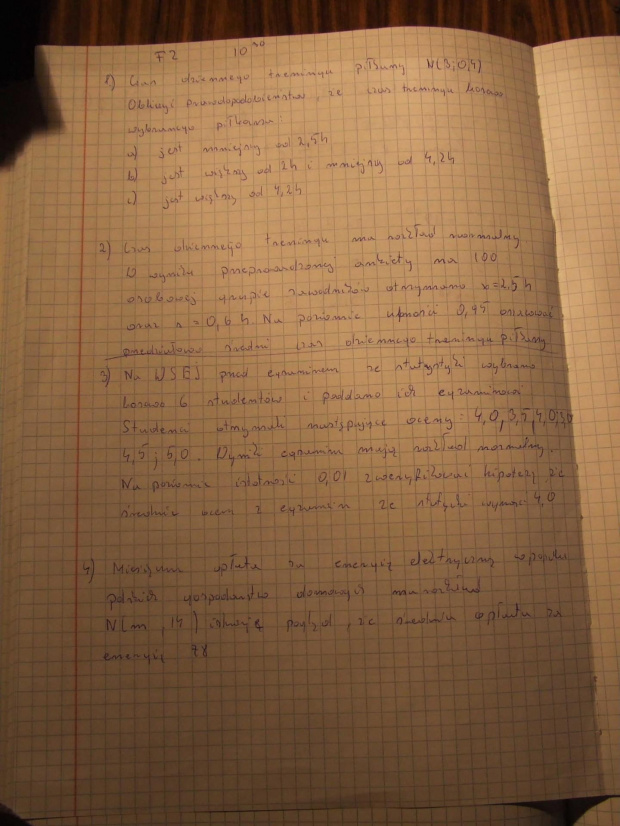 F2 10³⁰
1) Czas dziennego treningu piłkarzy N(3;0,4)
Obliczyć prawdopodobieństwo, że czas treningu losowo
wybranego piłkarza:
a) jest mniejszy od 2,5h
b) jest większy od 2h i mniejszy od 4,2h
c) jest większy od 4,2h
2) Czas dziennego treningu ma rozkład normalny
W wyniku przeprowadzonej ankiety na 100
osobowej grupie zawodników otrzymano x=2,5 h
oraz s=0,6 h. Na poziomie ufności 0,95 oszacować
przedziałowo średni czas dziennego treningu piłkarzy
3) Na WSEI przed egzaminem ze statystyki wybrano
losowo 6 studentów i poddano ich egzaminowi
Studenci otrzymali następujące oceny: 4,0, 3,5, 4,0;
4,5; 5,0. Wyniki egzaminu mają rozkład normalny.
Na poziomie istotności 0,01 zweryfikować hipotezę że
średnia ocena z egzaminu ze statystyki wynosi 4,0
4) Miesięczna opłata za energię elektryczną
polskich gospodarstw domowych ma rozkład
N(m, 14) istnieje pogląd, że średnia opłata za
energię 78